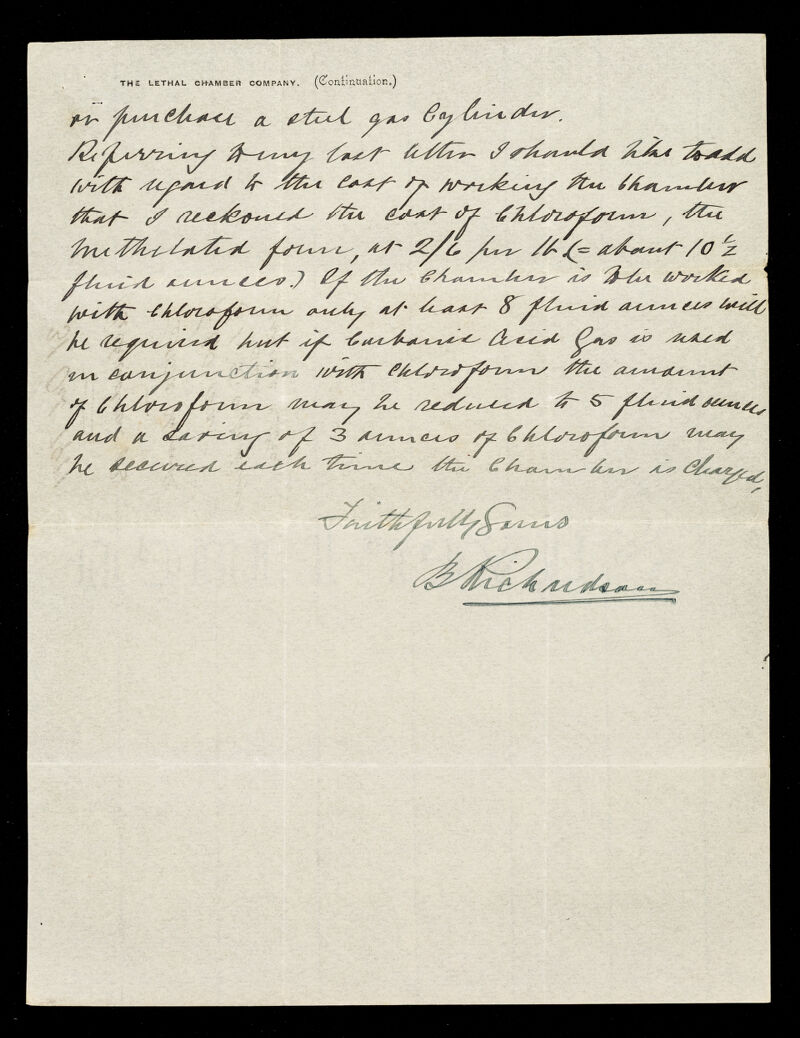 THE LETHAL CHAMBER COMPANY. (Continuation.)
or purchase a steel gas Cylinder.
Referring to my last letter I should like to add
with regard to the cost of working the Chamber
that I reckoned the cost of Chloroform, the
methelated form, at 2/6 per lb. (= about 10 1/2
fluid ounces.) If the Chamber is to be worked
with Chloroform only at least 8 fluid ounces will
be required but if Carbonic Acid Gas is used
in conjunction with Chloroform the amount
of Chloroform may be reduced to 5 fluid ounces
and a saving of 3 ounces of Chloroform may
be secured each time the Chamber is Charged,
Faithfully Yours
B Richardson